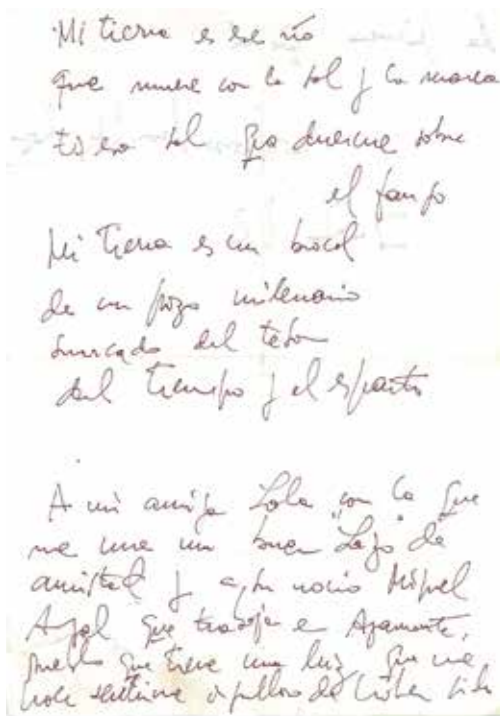 Mi tierra es ese río
que muere con la sal y la marea
Es esa sal que duerme sobre
el fango
Mi tierra es un brocal
de un pozo milenario
surcado del tesón
del tiempo y el esparto
A mi amiga Lola con la que
me une un buen "Lazo" de
amistad y a su novio Miguel
Angel que trabaja en Ayamonte,
pueblo que tiene una luz que me
hace sentirme orgulloso de haber sido